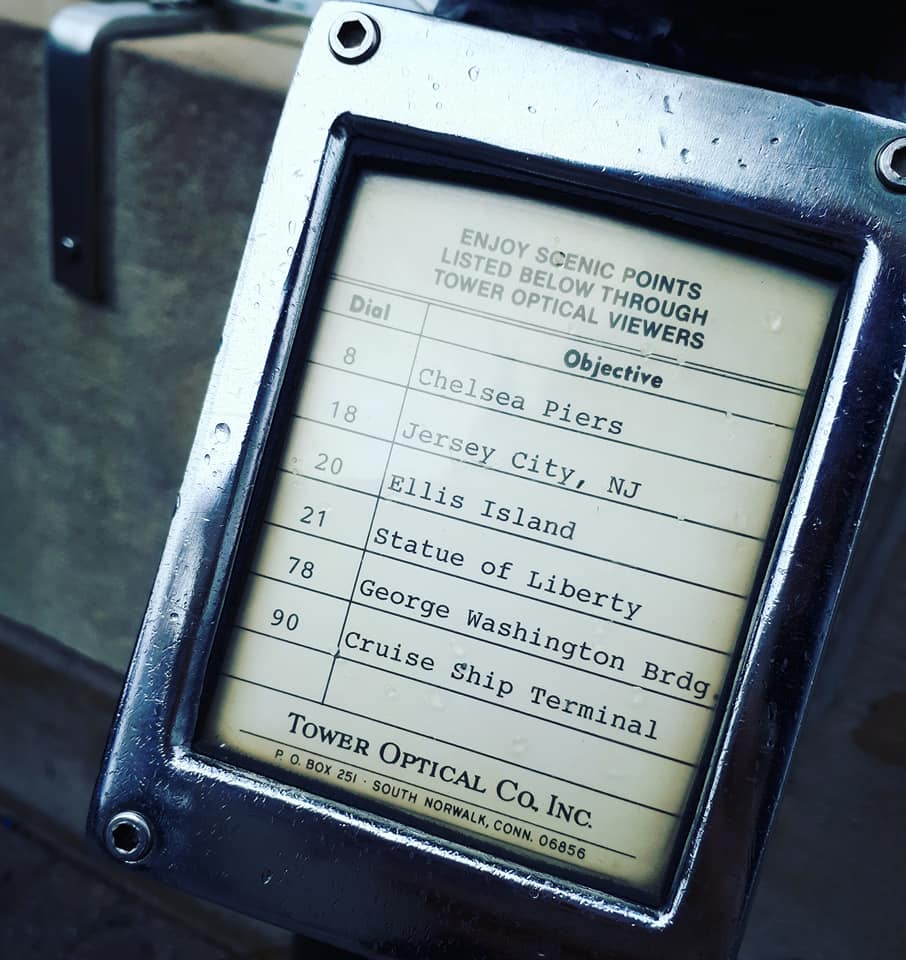 ENJOY SCENIC POINTS
LISTED BELOW THROUGH
TOWER OPTICAL VIEWERS
Dial Objective
8 Chelsea Piers
18 Jersey City, NJ
20 Ellis Island
21 Statue of Liberty
78 George Washington Brdg.
90 Cruise Ship Terminal
TOWER OPTICAL CO. INC.
P. O. BOX 251 · SOUTH NORWALK, CONN. 06856